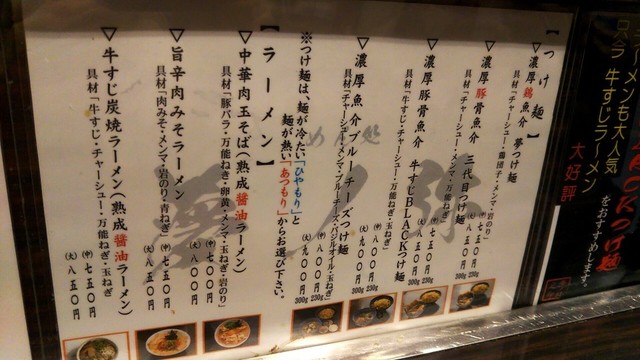 【つけ麺】
▽濃厚鶏魚介 夢つけ麺
具材「チャーシュー・鶏団子・メンマ・岩のり」
(中)七五〇円 230g
(大)八五〇円 300g
▽濃厚豚骨魚介 三代目つけ麺
具材「チャーシュー・メンマ・万能ねぎ」
▽濃厚豚骨魚介 牛すじBLACKつけ麺
具材「牛すじ・チャーシュー・万能ねぎ・玉ねぎ」
(中)八〇〇円 230g
(大)九〇〇円 300g
▽濃厚魚介ブルーチーズつけ麺
具材「チャーシュー・メンマ・ブルーチーズ・バジルオイル・玉ねぎ」
(中)八〇〇円 230g
(大)九〇〇円 300g
※つけ麺は、麺が冷たい「ひやもり」と
麺が熱い「あつもり」からお選び下さい。
【ラーメン】
▽中華肉玉そば(熟成醤油ラーメン)
具材「豚バラ・万能ねぎ・卵黄・メンマ・玉ねぎ・岩のり」
(中)七〇〇円
(大)八〇〇円
▽旨辛肉みそラーメン
具材「肉みそ・メンマ・岩のり・白ねぎ」
(中)七五〇円
(大)八五〇円
▽牛すじ炭焼ラーメン(熟成醤油ラーメン)
具材「牛すじ・チャーシュー・万能ねぎ・玉ねぎ」
(中)七五〇円
(大)八五〇円
つけ麺
をおすすめします。
ーメンも大人気
牛すじラーメン
大好評